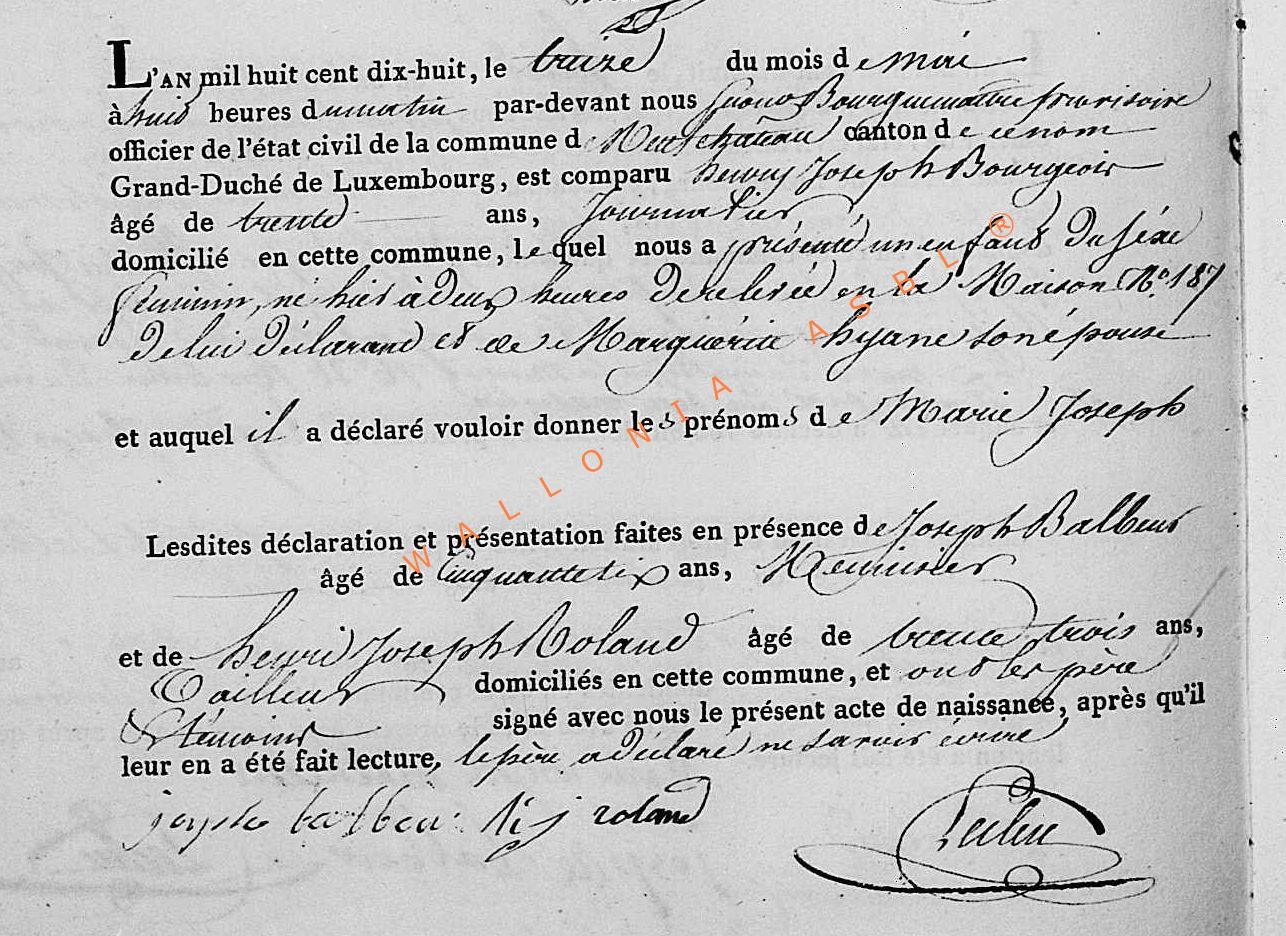 L'AN mil huit cent dix-huit, le treize du mois de mai
à huit heures du matin par-devant nous Bourguemaître provisoire
officier de l'état civil de la commune de Neufchateau canton de ce nom
Grand-Duché de Luxembourg, est comparu henry Joseph Bourgeois
âgé de trente ans, Journalier
domicilié en cette commune, lequel nous a présenté un enfant du séxe
feminin, né hier à deux heures de relevée en la Maison No. 187
de lui déclarant et de Marguérite hyane son épouse
et auquel il a déclaré vouloir donner les prénoms de Marie Joseph
Lesdites déclaration et présentation faites en présence de Joseph Balbeur
âgé de Cinquante six ans, Menuisier
et de henri Joseph Roland âgé de trente trois ans,
Tailleur domiciliés en cette commune, et ont les père
& témoins signé avec nous le présent acte de naissance, après qu'il
leur en a été fait lecture, le père a déclaré ne savoir écrire
joseph balbeur h j roland
WALLONIA ASBL ®